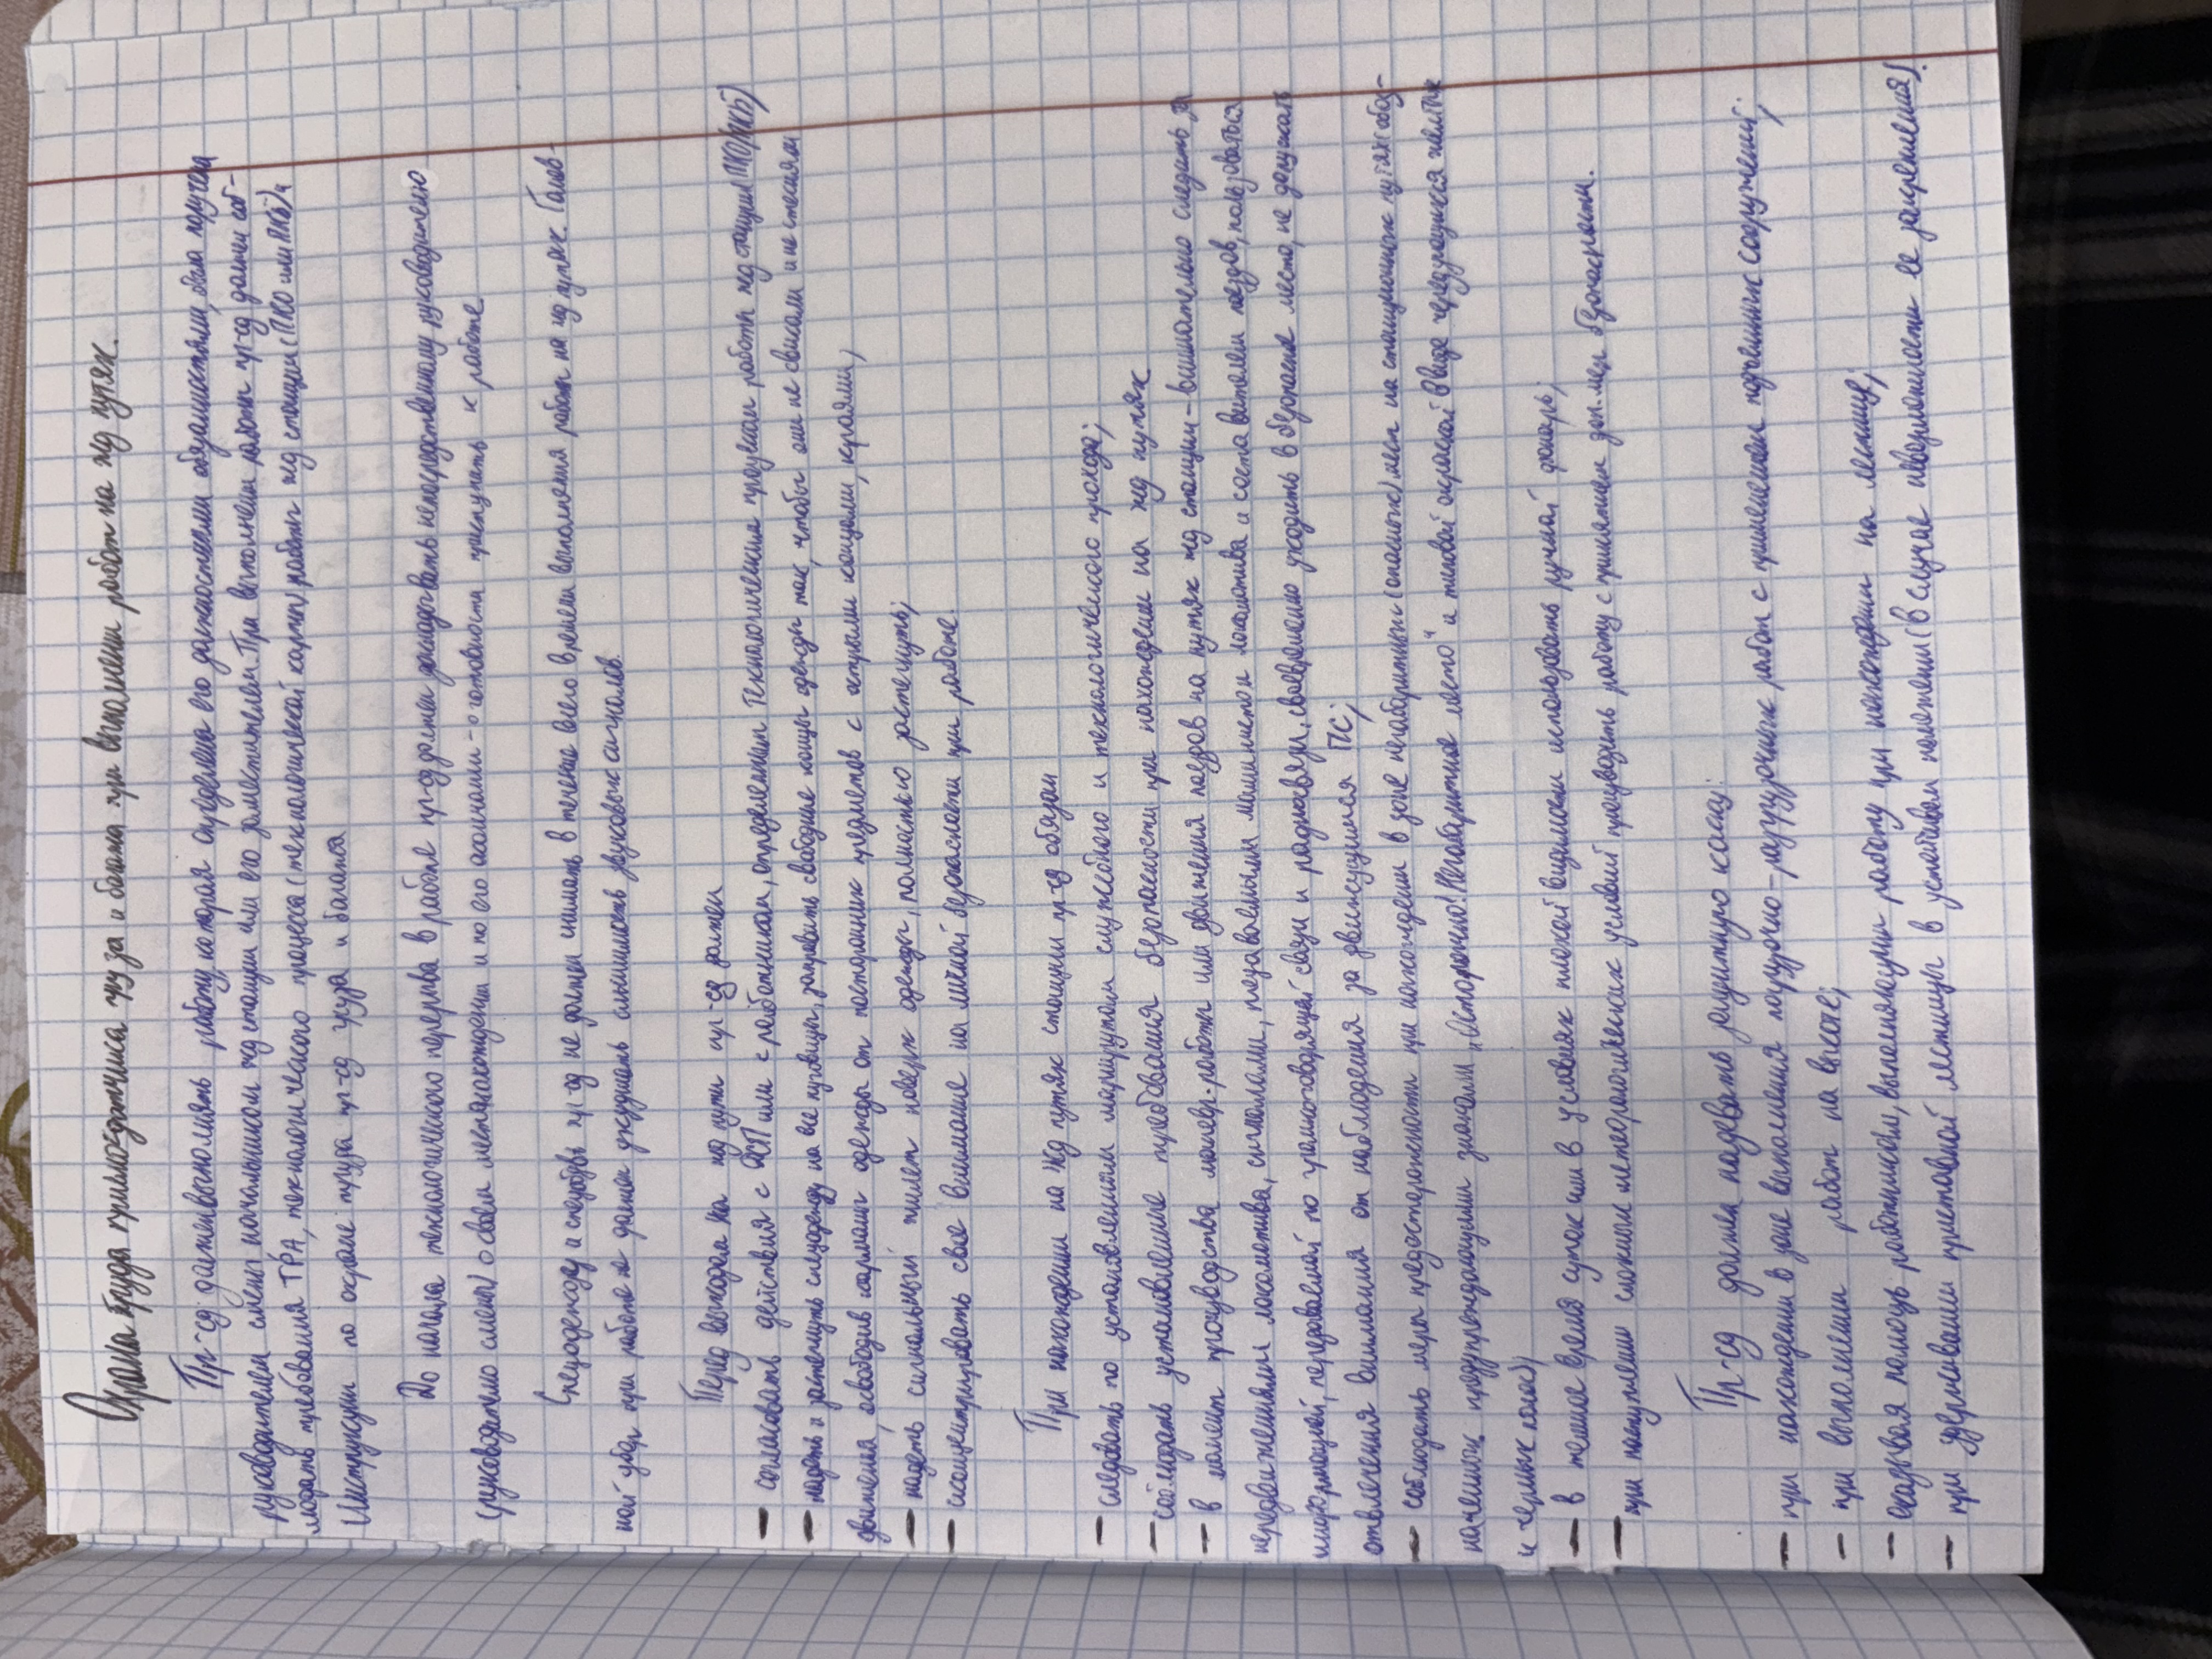 Охрана труда приёмосдатчика груза и багажа при выполнении работ на жд путях.
Пр-сд должен выполнять работу которая определена его должностными обязанностями, была поручена
руководителем смены начальником жд станции или его заместителем. При выполнении работы пр-сд должен соб-
людать требования ТРА, технологического процесса (технологической карты) работы жд станции (ПКО или РКБ) и
Инструкции по охране труда пр-сд груза и багажа
До начала технологического перерыва в работе пр-сд должен докладывать непосредственному руководителю
(руководителю смены) о своём местонахождении и по его окончании - о готовности приступить к работе
Спецодежду и спецобувь пр-сд не должен снимать в течение всего времени выполнения работ на жд путях. Голов-
ной убор при работе не должен ухудшать слышимость звуковых сигналов.
Перед выходом на жд пути пр-сд должен
- согласовать действия с ДСП или с работником, определённым Технологическим процессом работы жд станции (ПКО/РКБ)
- надеть и застегнуть спецодежду на все пуговицы, заправить свободные концы одежды так, чтобы они не свисали и не стесняли
движения, освободив карманы одежды от посторонних предметов с острыми концами, краями;
- надеть сигнальный жилет поверх одежды, полностью застегнуть;
- сконцентрировать свое внимание на личной безопасности при работе.
При нахождении на жд путях станции пр-сд обязан
- следовать по установленным маршрутам служебного и технологического прохода;
- соблюдать установленные требования безопасности при нахождении на жд путях
- в момент производства маневр. работы или движения поездов на путях жд станции - внимательно следить за
передвижениями локомотива, сигналами, подаваемыми машинистом локомотива и составителем поездов, пользоваться
информацией, передаваемой по громкоговорящей связи и радиосвязи, своевременно уходить в безопасное место, не допускать
отвлечения внимания от наблюдения за движущимся ПС;
- соблюдать меры предосторожности при нахождении в зоне негабаритных (опасных) мест на станционных путях обоз-
наченных предупреждающими знаками "Осторожно! Негабаритное место" и типовой окраской в виде чередующихся желтых
и черных полос;
- в темное время суток или в условиях плохой видимости использовать ручной фонарь;
- при наступлении сложных метеорологических условий производить работу с принятием доп. мер безопасности.
Пр-сд должна надевать защитную каску:
- при нахождении в зоне выполнения погрузочно-разгрузочных работ с применением подъемных сооружений;
- при выполнении работ на высоте;
- оказывая помощь работникам, выполняющим работу при нахождении на лестнице;
- при удерживании приставной лестницы в устойчивом положении (в случае невозможности ее закрепления).